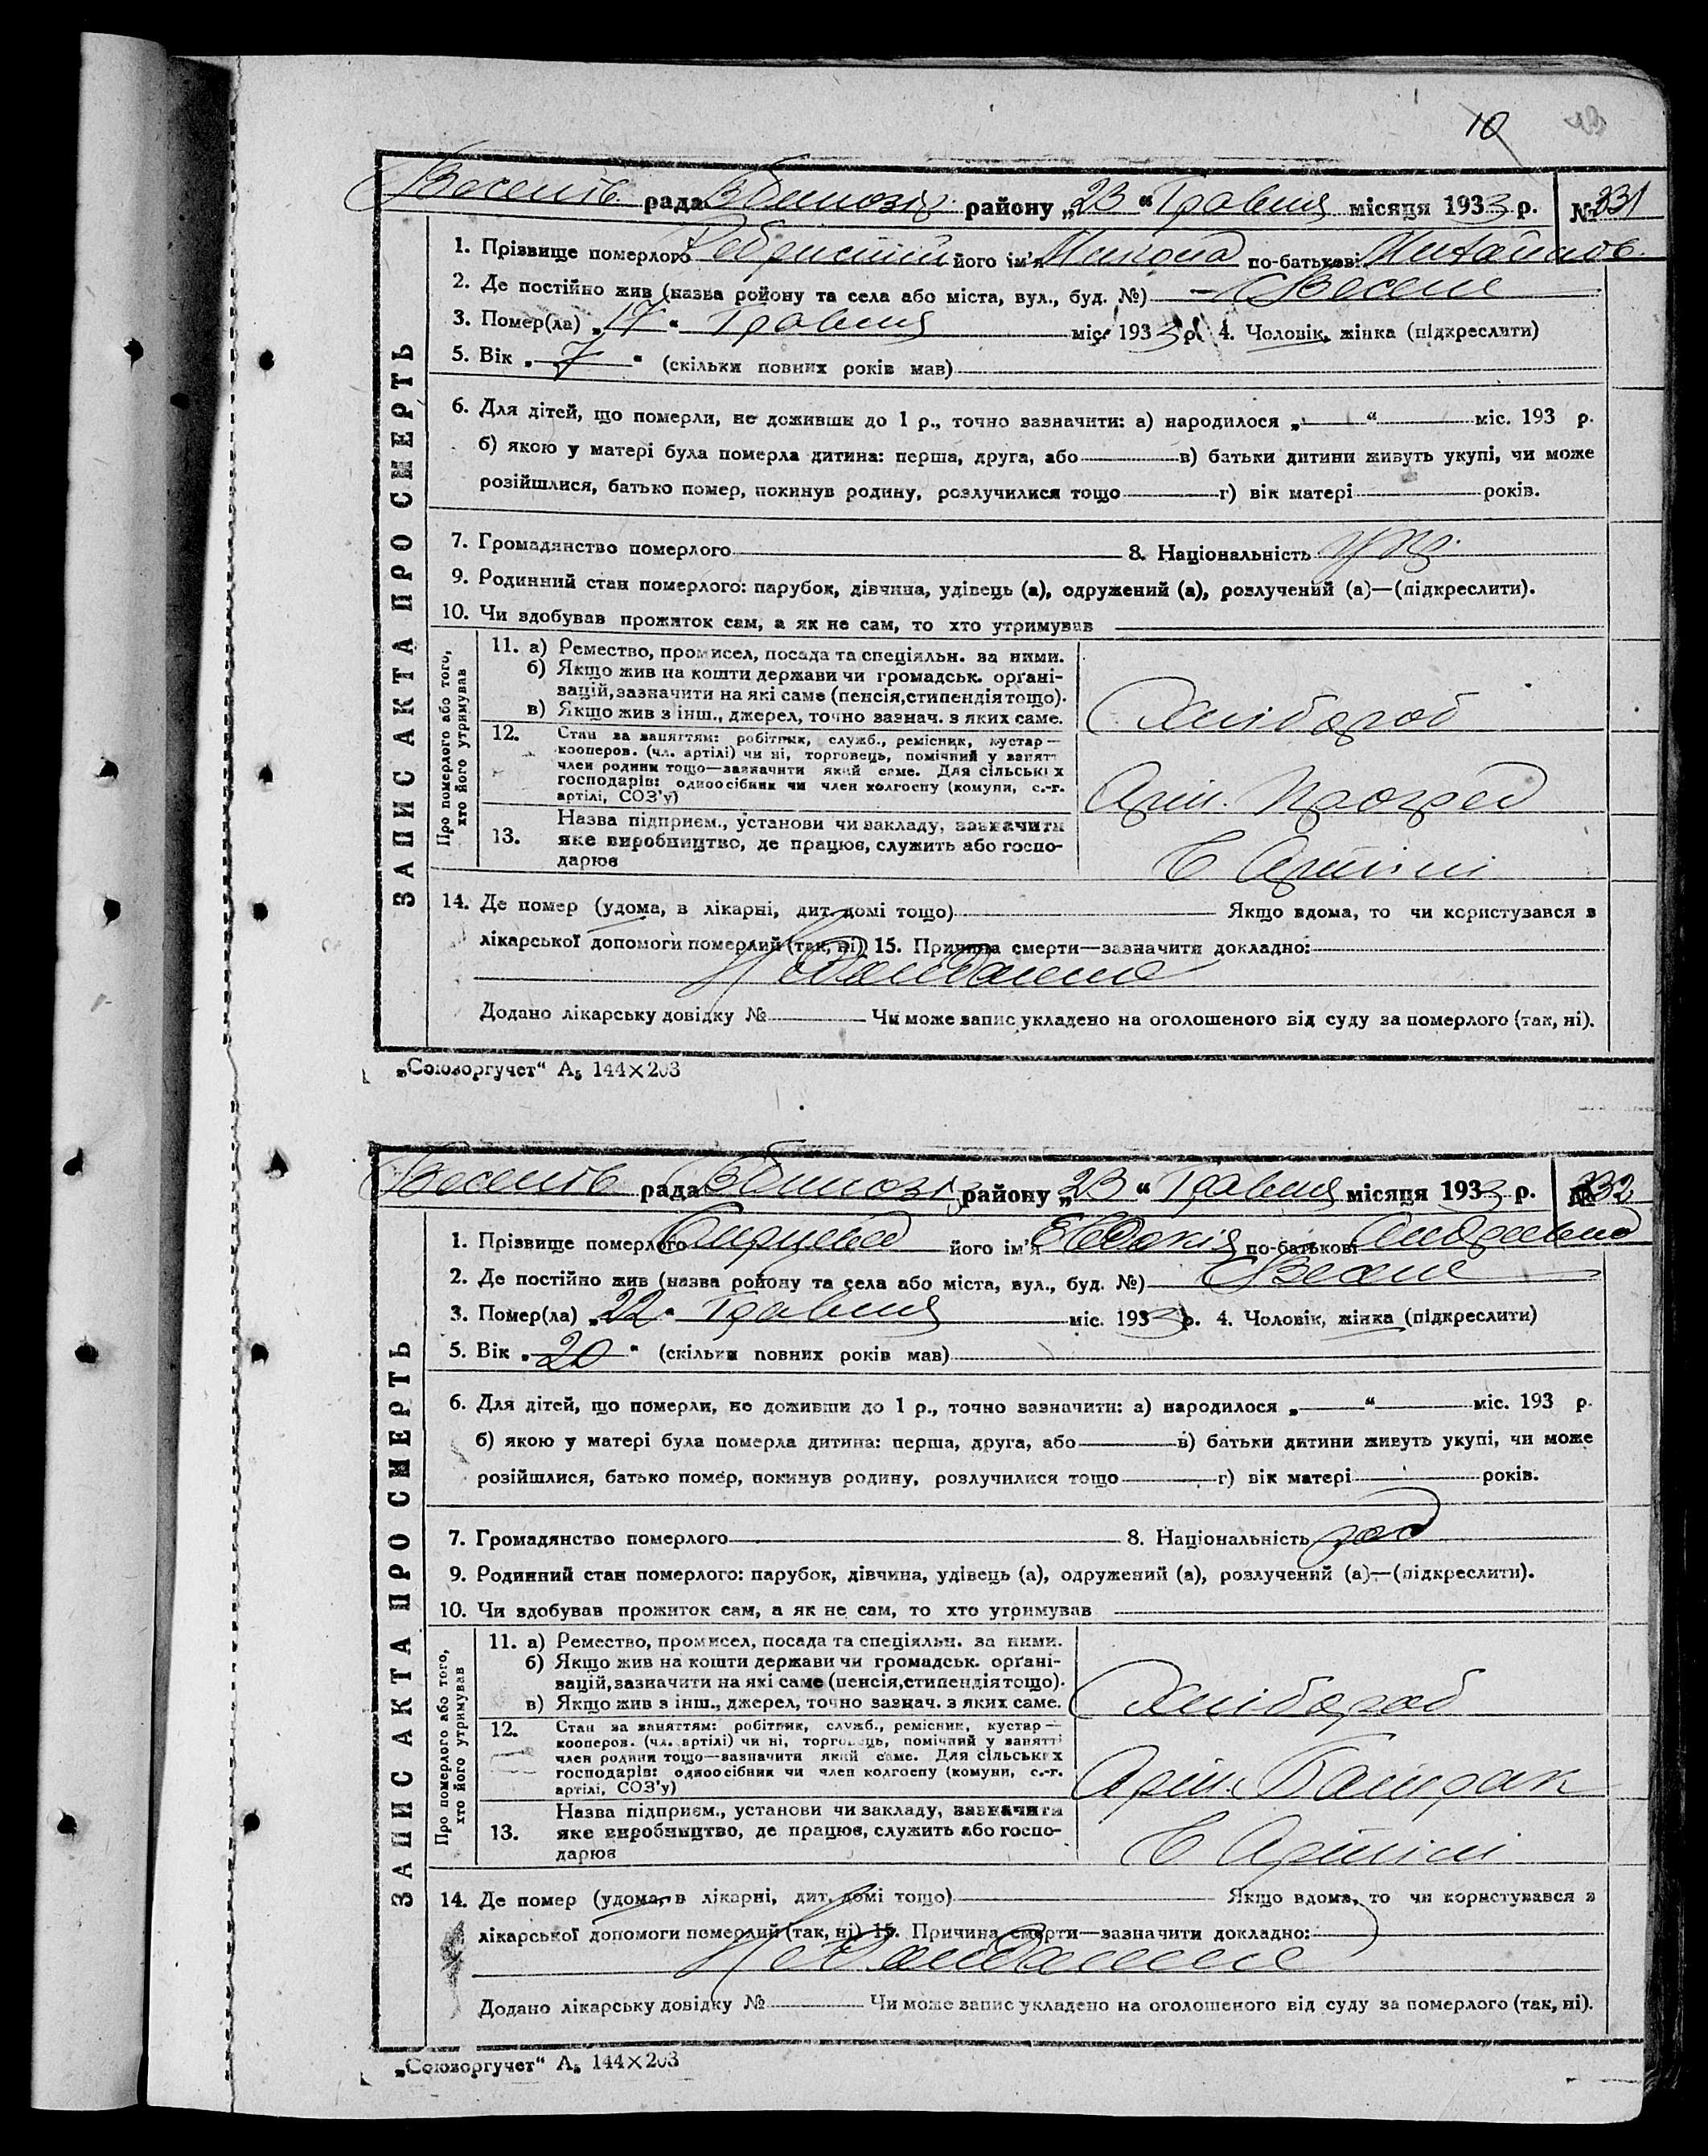 10
рада району „23“ Травня місяця 1933 р. № 331
ЗАПИС АКТА ПРО СМЕРТЬ
1. Прізвище померлого його ім'я Микола по-батькові Михайлов.
2. Де постійно жив (назва ройону та села або міста, вул., буд. №) — с Веселе
3. Помер(ла) „17“ Травня міс. 1933 р. 4. Чоловік, жінка (підкреслити)
5. Вік „7“ (скільки повних років мав)
6. Для дітей, що померли, не доживши до 1 р., точно зазначити: а) народилося „ “ міс. 193 р.
б) якою у матері була померла дитина: перша, друга, або в) батьки дитини живуть укупі, чи може
розійшлися, батько помер, покинув родину, розлучилися тощо г) вік матері років.
7. Громадянство померлого 8. Національність укр.
9. Родинний стан померлого: парубок, дівчина, удівець (а), одружений (а), розлучений (а)—(підкреслити).
10. Чи здобував прожиток сам, а як не сам, то хто утримував
Про померлого або того,
хто його утримував
11. а) Ремество, промисел, посада та спеціяльн. за ними.
б) Якщо жив на кошти держави чи громадськ. органі-
зацій, зазначити на які саме (пенсія, стипендія тощо).
в) Якщо жив з інш., джерел, точно зазнач. з яких саме.
Хлібороб
12. Стан за заняттям: робітник, служб., ремісник, кустар—
кооперов. (чл. артілі) чи ні, торговець, помічний у занятт
член родини тощо—зазначити який саме. Для сільських
господарів: одноосібник чи член колгоспу (комуни, с.-г.
артілі, СОЗ'у)
Арт.
13. Назва підприєм., установи чи закладу, зазначити
яке виробництво, де працює, служить або госпо-
дарює
В Артілі
14. Де помер (удома, в лікарні, дит. домі тощо) Якщо вдома, то чи користувався з
лікарської допомоги померлий (так, ні) 15. Причина смерти—зазначити докладно:
Додано лікарську довідку № Чи може запис укладено на оголошеного від суду за померлого (так, ні).
„Союзоргучет“ А₅ 144×203
рада району „23“ Травня місяця 1933 р. № 332
ЗАПИС АКТА ПРО СМЕРТЬ
1. Прізвище померлого його ім'я Євдокія по-батькові Андреевна
2. Де постійно жив (назва ройону та села або міста, вул., буд. №) с Веселе
3. Помер(ла) „22“ Травня міс. 1933 р. 4. Чоловік, жінка (підкреслити)
5. Вік „20“ (скільки повних років мав)
6. Для дітей, що померли, не доживши до 1 р., точно зазначити: а) народилося „ “ міс. 193 р.
б) якою у матері була померла дитина: перша, друга, або в) батьки дитини живуть укупі, чи може
розійшлися, батько помер, покинув родину, розлучилися тощо г) вік матері років.
7. Громадянство померлого 8. Національність
9. Родинний стан померлого: парубок, дівчина, удівець (а), одружений (а), розлучений (а)—(підкреслити).
10. Чи здобував прожиток сам, а як не сам, то хто утримував
Про померлого або того,
хто його утримував
11. а) Ремество, промисел, посада та спеціяльн. за ними.
б) Якщо жив на кошти держави чи громадськ. органі-
зацій, зазначити на які саме (пенсія, стипендія тощо).
в) Якщо жив з інш., джерел, точно зазнач. з яких саме.
Хлібороб
12. Стан за заняттям: робітник, служб., ремісник, кустар—
кооперов. (чл. артілі) чи ні, торговець, помічний у занятті
член родини тощо—зазначити який саме. Для сільських
господарів: одноосібник чи член колгоспу (комуни, с.-г.
артілі, СОЗ'у)
Арт. Батрак
13. Назва підприєм., установи чи закладу, зазначити
яке виробництво, де працює, служить або госпо-
дарює
В Артілі
14. Де помер (удома, в лікарні, дит. домі тощо) Якщо вдома, то чи користувався з
лікарської допомоги померлий (так, ні) 15. Причина смерти—зазначити докладно:
Додано лікарську довідку № Чи може запис укладено на оголошеного від суду за померлого (так, ні).
„Союзоргучет“ А₅ 144×203